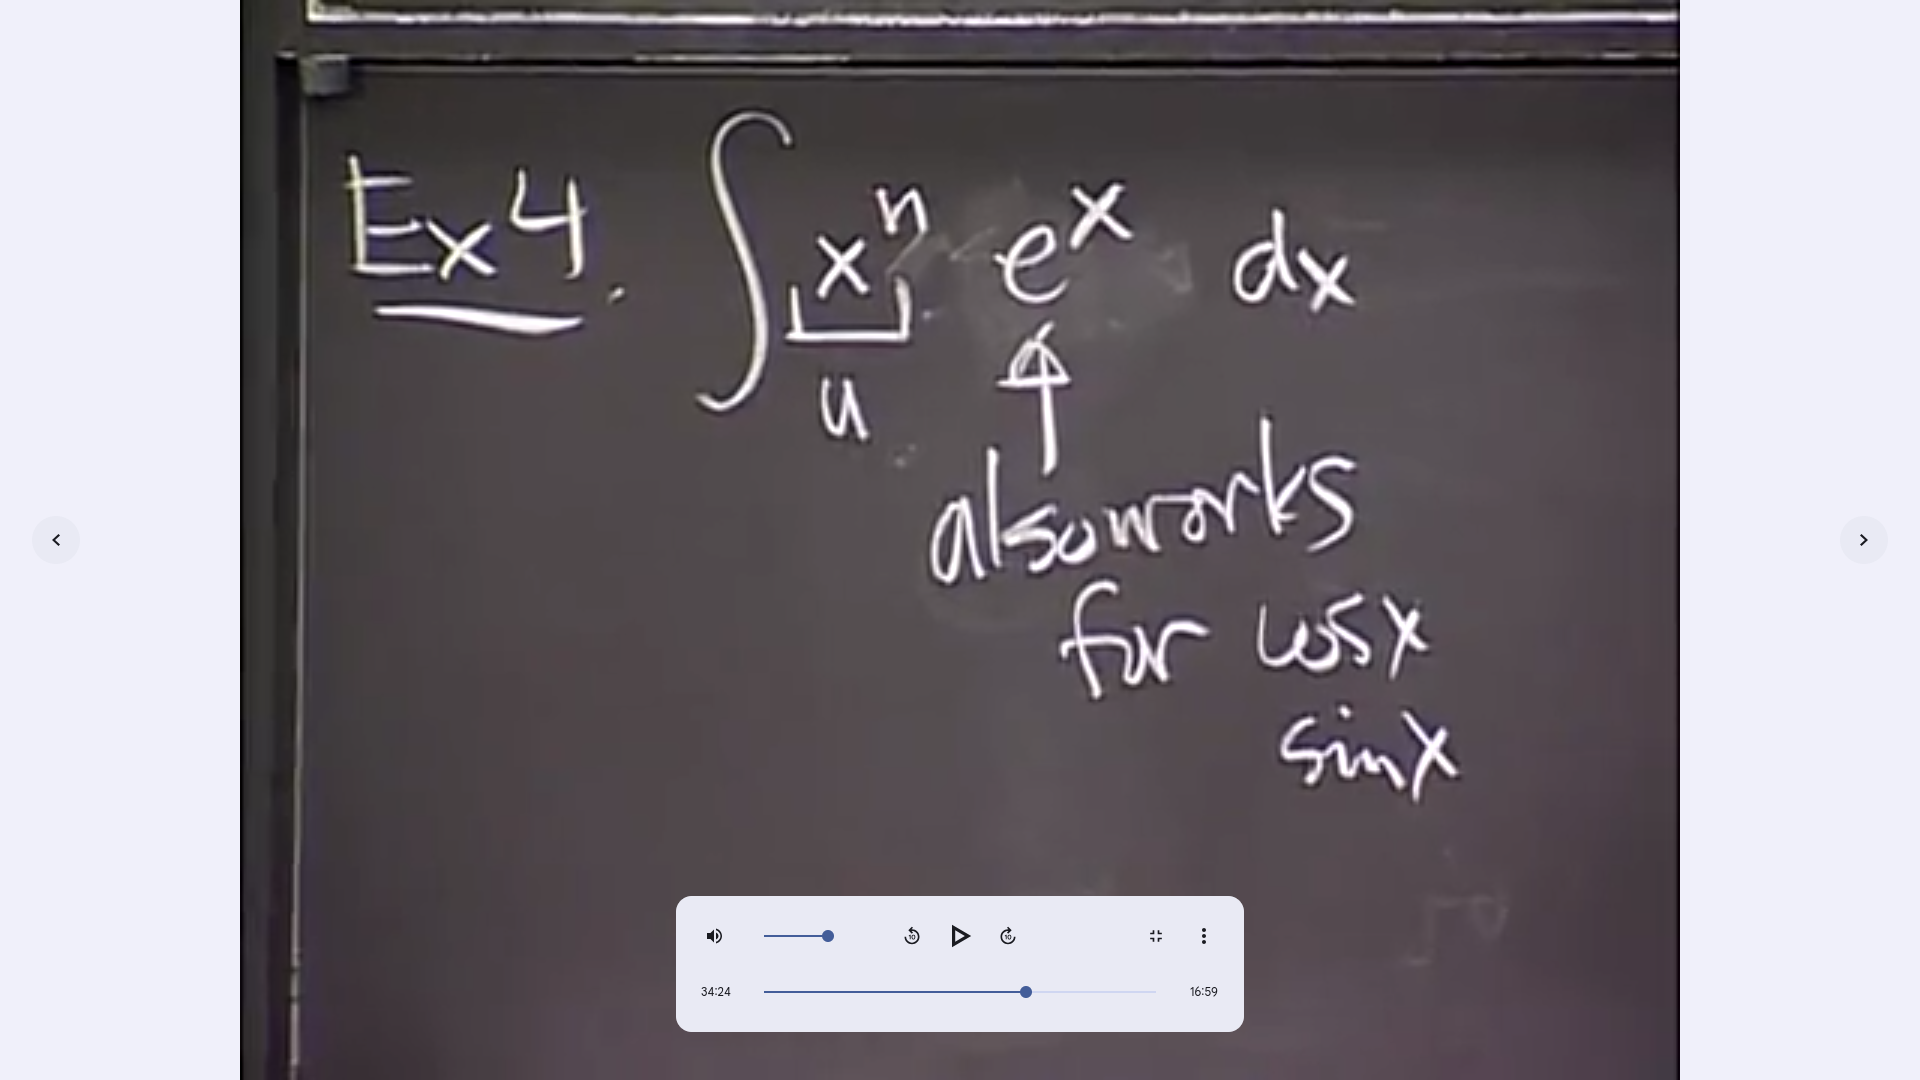 Ex 4. ∫ xⁿ eˣ dx
u
also works
for cos x
sin x
10
10
34:24
16:59